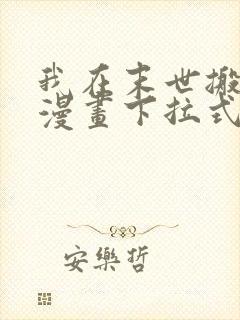 我在末世搬
漫畫下拉式
安樂哲